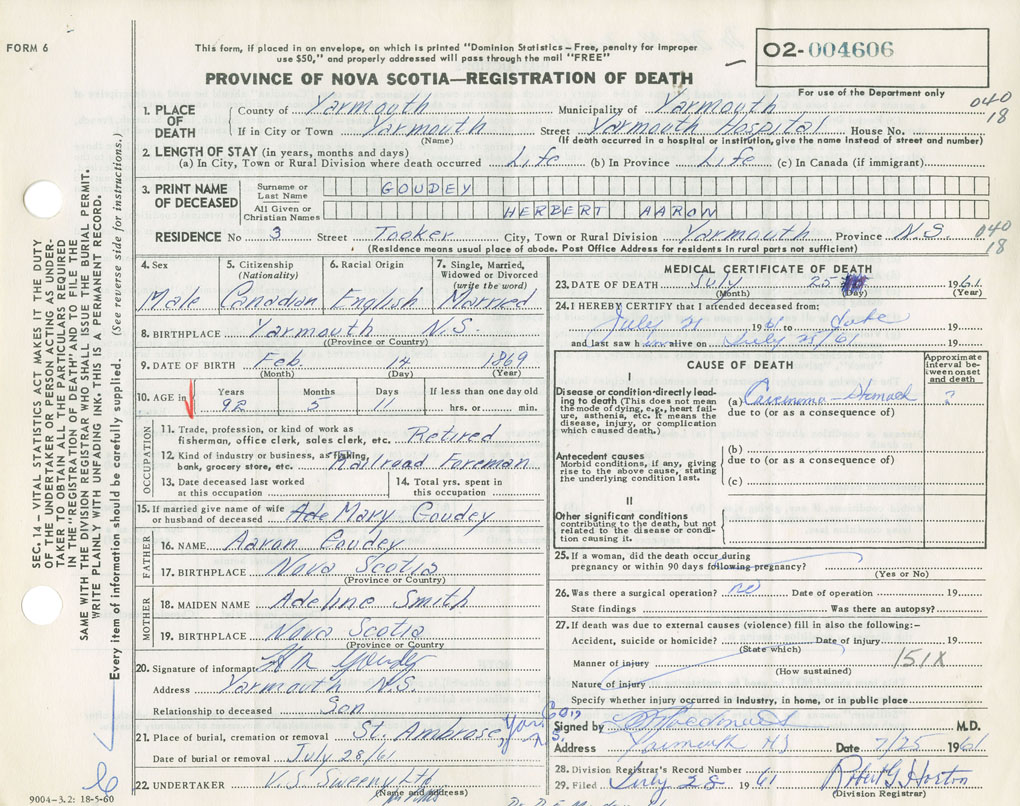 FORM 6
This form, if placed in an envelope, on which is printed "Dominion Statistics – Free, penalty for improper
use $50," and properly addressed will pass through the mail "FREE"
O2-004606
PROVINCE OF NOVA SCOTIA—REGISTRATION OF DEATH
For use of the Department only
040
18
1. PLACE OF DEATH County of Yarmouth Municipality of Yarmouth
If in City or Town Yarmouth Street Yarmouth Hospital House No.
(Name) (If death occurred in a hospital or institution, give the name instead of street and number)
2. LENGTH OF STAY (in years, months and days)
(a) In City, Town or Rural Division where death occurred Life (b) In Province Life (c) In Canada (if immigrant)
3. PRINT NAME OF DECEASED Surname or Last Name GOUDEY
All Given or Christian Names HERBERT AARON
RESIDENCE No 3 Street Tooker City, Town or Rural Division Yarmouth Province N.S.
040
18
(Residence means usual place of abode. Post Office Address for residents in rural parts not sufficient)
4. Sex Male
5. Citizenship (Nationality) Canadian
6. Racial Origin English
7. Single, Married, Widowed or Divorced (write the word) Married
8. BIRTHPLACE Yarmouth N.S.
(Province or Country)
9. DATE OF BIRTH Feb. 14 1869
(Month) (Day) (Year)
10. AGE in Years 92 Months 5 Days 11 If less than one day old hrs. or min.
OCCUPATION
11. Trade, profession, or kind of work as fisherman, office clerk, sales clerk, etc. Retired
12. Kind of industry or business, as fishing, bank, grocery store, etc. Railroad Foreman
13. Date deceased last worked at this occupation
14. Total yrs. spent in this occupation
15. If married give name of wife or husband of deceased Ada Mary Goudey
FATHER
16. NAME Aaron Goudey
17. BIRTHPLACE Nova Scotia
(Province or Country)
MOTHER
18. MAIDEN NAME Adeline Smith
19. BIRTHPLACE Nova Scotia
(Province or Country)
20. Signature of informant Goudey
Address Yarmouth N.S.
Relationship to deceased Son
21. Place of burial, cremation or removal St. Ambrose, Yar. Co.
Date of burial or removal July 28/61
22. UNDERTAKER V.S. Sweeny Ltd
(Name and address)
9004-3.2: 18-5-60
MEDICAL CERTIFICATE OF DEATH
23. DATE OF DEATH July 25 1961
(Month) (Day) (Year)
24. I HEREBY CERTIFY that I attended deceased from:
July 21 1961 to date 19
and last saw him alive on July 25/61 19
CAUSE OF DEATH
Approximate interval between onset and death
I
Disease or condition directly leading to death (This does not mean the mode of dying, e.g., heart failure, asthenia, etc. It means the disease, injury, or complication which caused death.)
(a) Carcinoma - Stomach ?
due to (or as a consequence of)
Antecedent causes
Morbid conditions, if any, giving rise to the above cause, stating the underlying condition last.
(b)
due to (or as a consequence of)
(c)
II
Other significant conditions
contributing to the death, but not related to the disease or condition causing it.
25. If a woman, did the death occur during
pregnancy or within 90 days following pregnancy?
(Yes or No)
26. Was there a surgical operation? no Date of operation 19
State findings Was there an autopsy?
27. If death was due to external causes (violence) fill in also the following:-
Accident, suicide or homicide? Date of injury 19
(State which)
Manner of injury 151X
(How sustained)
Nature of injury
Specify whether injury occurred in industry, in home, or in public place
Signed by Macdonald M.D.
Address Yarmouth NS Date 7/25 1961
28. Division Registrar's Record Number
29. Filed July 28 61 Robert G Horton
(Division Registrar)
SEC. 14 – VITAL STATISTICS ACT MAKES IT THE DUTY
OF THE UNDERTAKER OR PERSON ACTING AS UNDER-
TAKER TO OBTAIN ALL THE PARTICULARS REQUIRED
IN THE "REGISTRATION OF DEATH" AND TO FILE THE
SAME WITH THE DIVISION REGISTRAR WHO SHALL ISSUE THE BURIAL PERMIT.
WRITE PLAINLY WITH UNFADING INK. THIS IS A PERMANENT RECORD.
Every item of information should be carefully supplied. (See reverse side for instructions.)